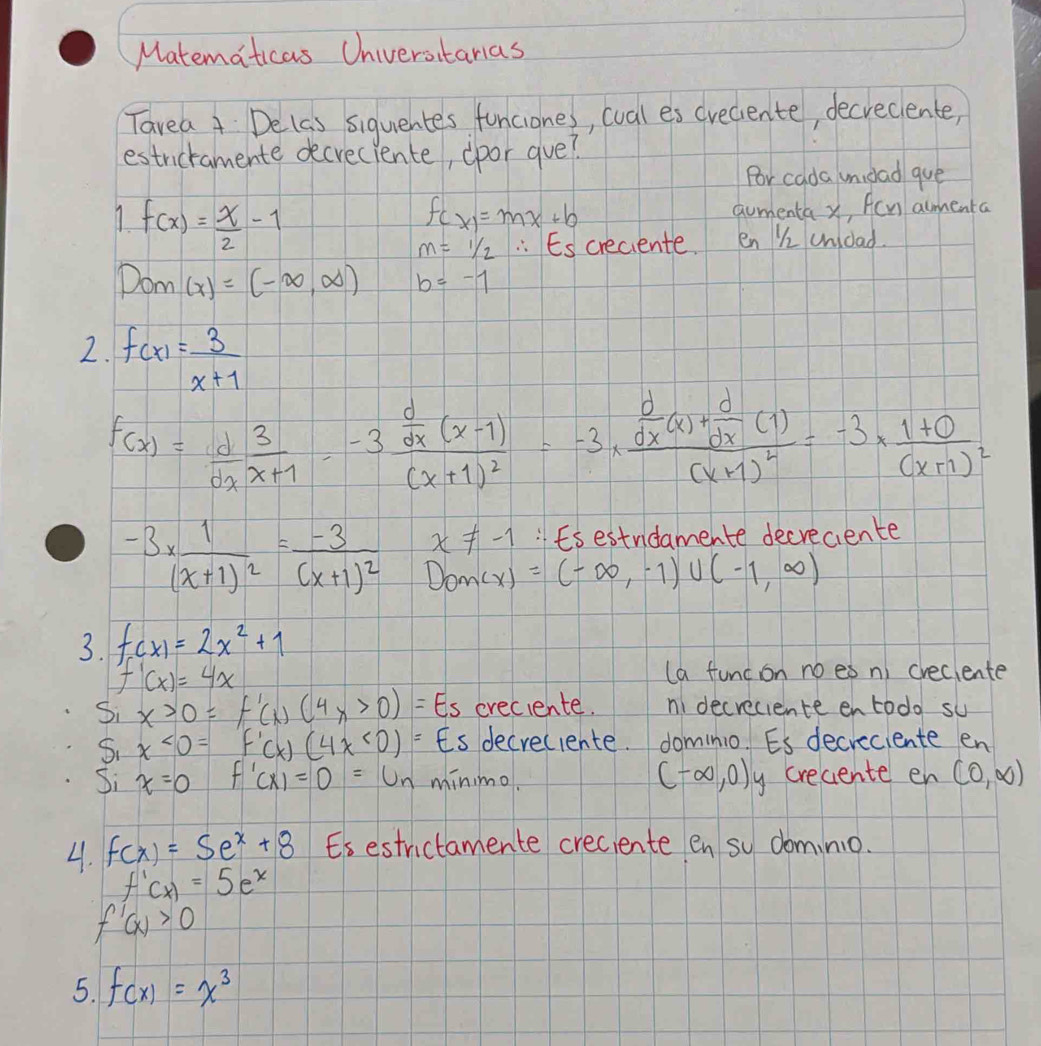 Matemáticas Universitarias
Tarea 7: De las siguientes funciones, cual es creciente, decreciente,
estrictamente decreciente, ¿por que?
1. f(x) = x/2 - 1
f(x) = mx + b
Por cada unidad que
aumenta x, f(x) aumenta
m = 1/2 ∴ Es creciente.
en 1/2 unidad.
Dom (x) = (-∞, ∞)
b = -1
2. f(x) = 3/(x+1)
f(x) = d/dx 3/(x+1) = -3 (d/dx (x-1))/(x+1)² = -3 × (d/dx (x) + d/dx (1))/(x+1)² = -3 × (1+0)/(x+1)²
-3 × 1/(x+1)² = -3/(x+1)² x ≠ -1 ∴ Es estridamente decreciente
Dom(x) = (-∞, -1) U (-1, ∞)
3. f(x) = 2x² + 1
f'(x) = 4x
La función no es ni creciente
· Si x > 0 = f'(x) (4x > 0) = Es creciente.
ni decreciente en todo su
· Si x < 0 = f'(x) (4x < 0) = Es decreciente.
dominio. Es decreciente en
· Si x = 0 f'(x) = 0 = Un mínimo.
(-∞, 0) y creciente en (0, ∞)
4. f(x) = 5e^x + 8 Es estrictamente creciente en su dominio.
f'(x) = 5e^x
f'(x) > 0
5. f(x) = x³